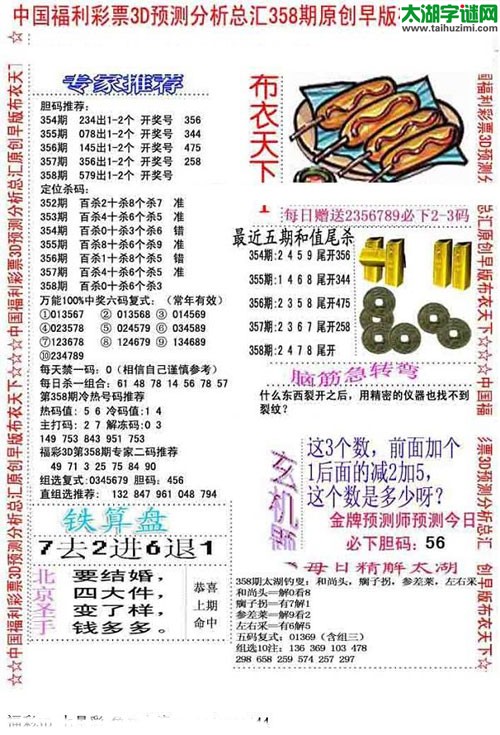 太湖字谜网
www.taihuzimi.com
中国福利彩票3D预测分析总汇358期原创早版
专家推荐
胆码推荐:
354期 234出1-2个 开奖号 356
355期 078出1-2个 开奖号 344
356期 145出1-2个 开奖号 475
357期 356出1-2个 开奖号 258
358期 579出1-2个 开奖号
定位杀码:
352期 百杀2十杀8个杀7 准
353期 百杀4十杀6个杀5 准
354期 百杀0十杀3个杀6 错
355期 百杀8十杀6个杀9 准
356期 百杀1十杀8个杀5 错
357期 百杀4十杀5个杀6 准
358期 百杀0十杀3个杀6
万能100%中奖六码复式: (常年有效)
①013567 ② 013568 ③ 014569
④023578 ⑤ 024579 ⑥ 034589
⑦123678 ⑧ 124679 ⑨ 134689
⑩234789
每天禁一码: 0 (相信自己谨慎参考)
每日杀一组合: 61 48 78 14 56 78 57
第358期冷热号码推荐
热码值: 5 6 冷码值: 1 4
主打码: 2 7 解冻码: 0 3
149 753 843 951 753
福彩3D第358期专家二码推荐
49 71 3 25 75 84 90
组选复式: 0345679 胆码: 456
直组选推荐: 132 847 961 048 794
铁算盘
7去2进6退1
北京圣于
要结婚,
四大件,
变了样,
钱多多。
恭喜
上期
命中
布衣天下
每日赠送2356789必下2-3码
最近五期和值尾杀
354期:2 4 5 9 尾开356
355期:1 4 6 8 尾开344
356期:2 3 5 8 尾开475
357期:2 3 6 7 尾开258
358期:2 4 7 8 尾开
脑筋急转弯
什么东西裂开之后,用精密的仪器也找不到
裂纹?
玄机
这3个数,前面加个
1后面的减2加5,
这个数是多少呀?
金牌预测师预测今日
必下胆码: 56
每日精解太湖
358期太湖钓叟: 和尚头, 瘸子拐, 参差菜, 左右采
和尚头=解0看8
瘸子拐=有7解1
参差菜=解9看2
左右采=有6解5
五码复式: 01369 (含组三)
组选10注: 136 369 103 478
298 658 259 574 257 297
☆☆中国福利彩票3D预测分析总汇原创早版布衣天下☆☆